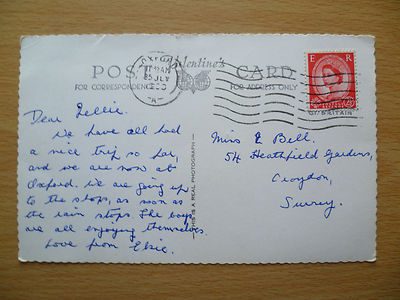 POST CARD
Valentine's
FOR CORRESPONDENCE
FOR ADDRESS ONLY
OXFORD
25 JLY
-A-
E R
THIS IS A REAL PHOTOGRAPH
Dear Nellie.
We have all had
a nice trip so far,
and we are now at
Oxford. We are going up
to the shops, as soon as
the rain stops The boys
are all enjoying themselves.
Love from Elsie.
Miss E Bell.
54 Heathfield Gardens,
Croydon,
Surrey.